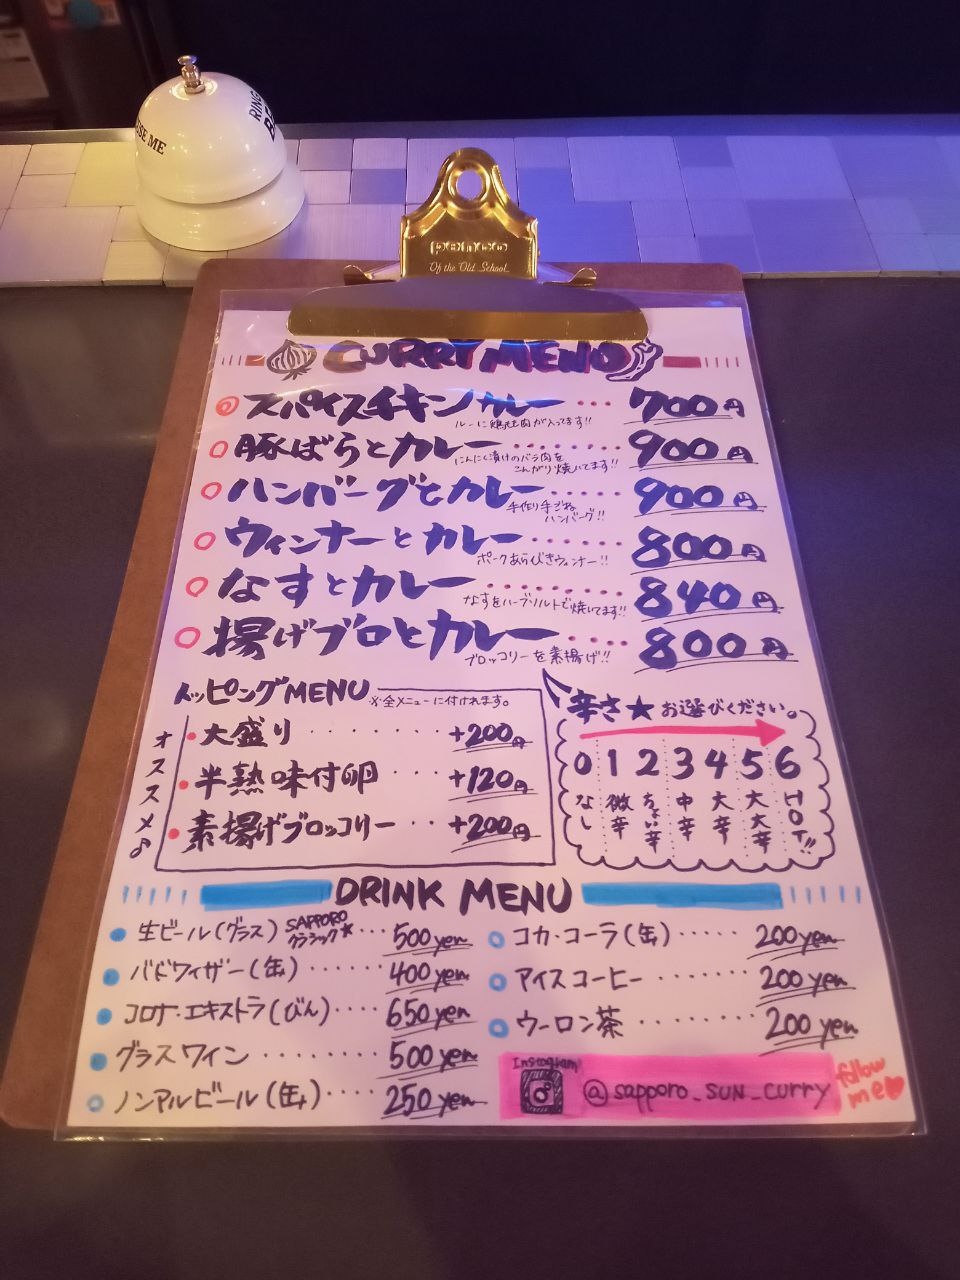 USE ME
RING
penco
Of the Old School
CURRY MENU
スパイスチキンカレー ・・・ 700円
ルーに鶏もも肉が入ってます!!
豚ばらとカレー ・・・・・・ 900円
にんにく漬けのバラ肉を
こんがり焼いてます!!
ハンバーグとカレー ・・・・・ 900円
手作り手ごね
ハンバーグ!!
ウィンナーとカレー ・・・・・ 800円
ポークあらびきウィンナー!!
なすとカレー ・・・・・・・ 840円
なすをハーブソルトで焼いてます!!
揚げブロとカレー ・・・・ 800円
ブロッコリーを素揚げ!!
トッピングMENU ※全メニューに付けれます。
オススメ♪
大盛り ・・・・・・・ +200円
半熟味付卵 ・・・ +120円
素揚げブロッコリー ・・ +200円
辛さ★お選びください。
0 1 2 3 4 5 6
なし 微辛 ちょい辛 中辛 大辛 大大辛 HOT!!
DRINK MENU
生ビール(グラス) SAPPOROクラシック★ ・・・ 500yen
バドワイザー(缶) ・・・・・・ 400yen
コロナ・エキストラ(びん) ・・・・ 650yen
グラスワイン ・・・・・・・・ 500yen
ノンアルビール(缶) ・・・・・ 250yen
コカ・コーラ(缶) ・・・・・・ 200yen
アイスコーヒー ・・・・・・・ 200yen
ウーロン茶 ・・・・・・・・ 200yen
Instagram
@sapporo_SUN_curry
follow me♥